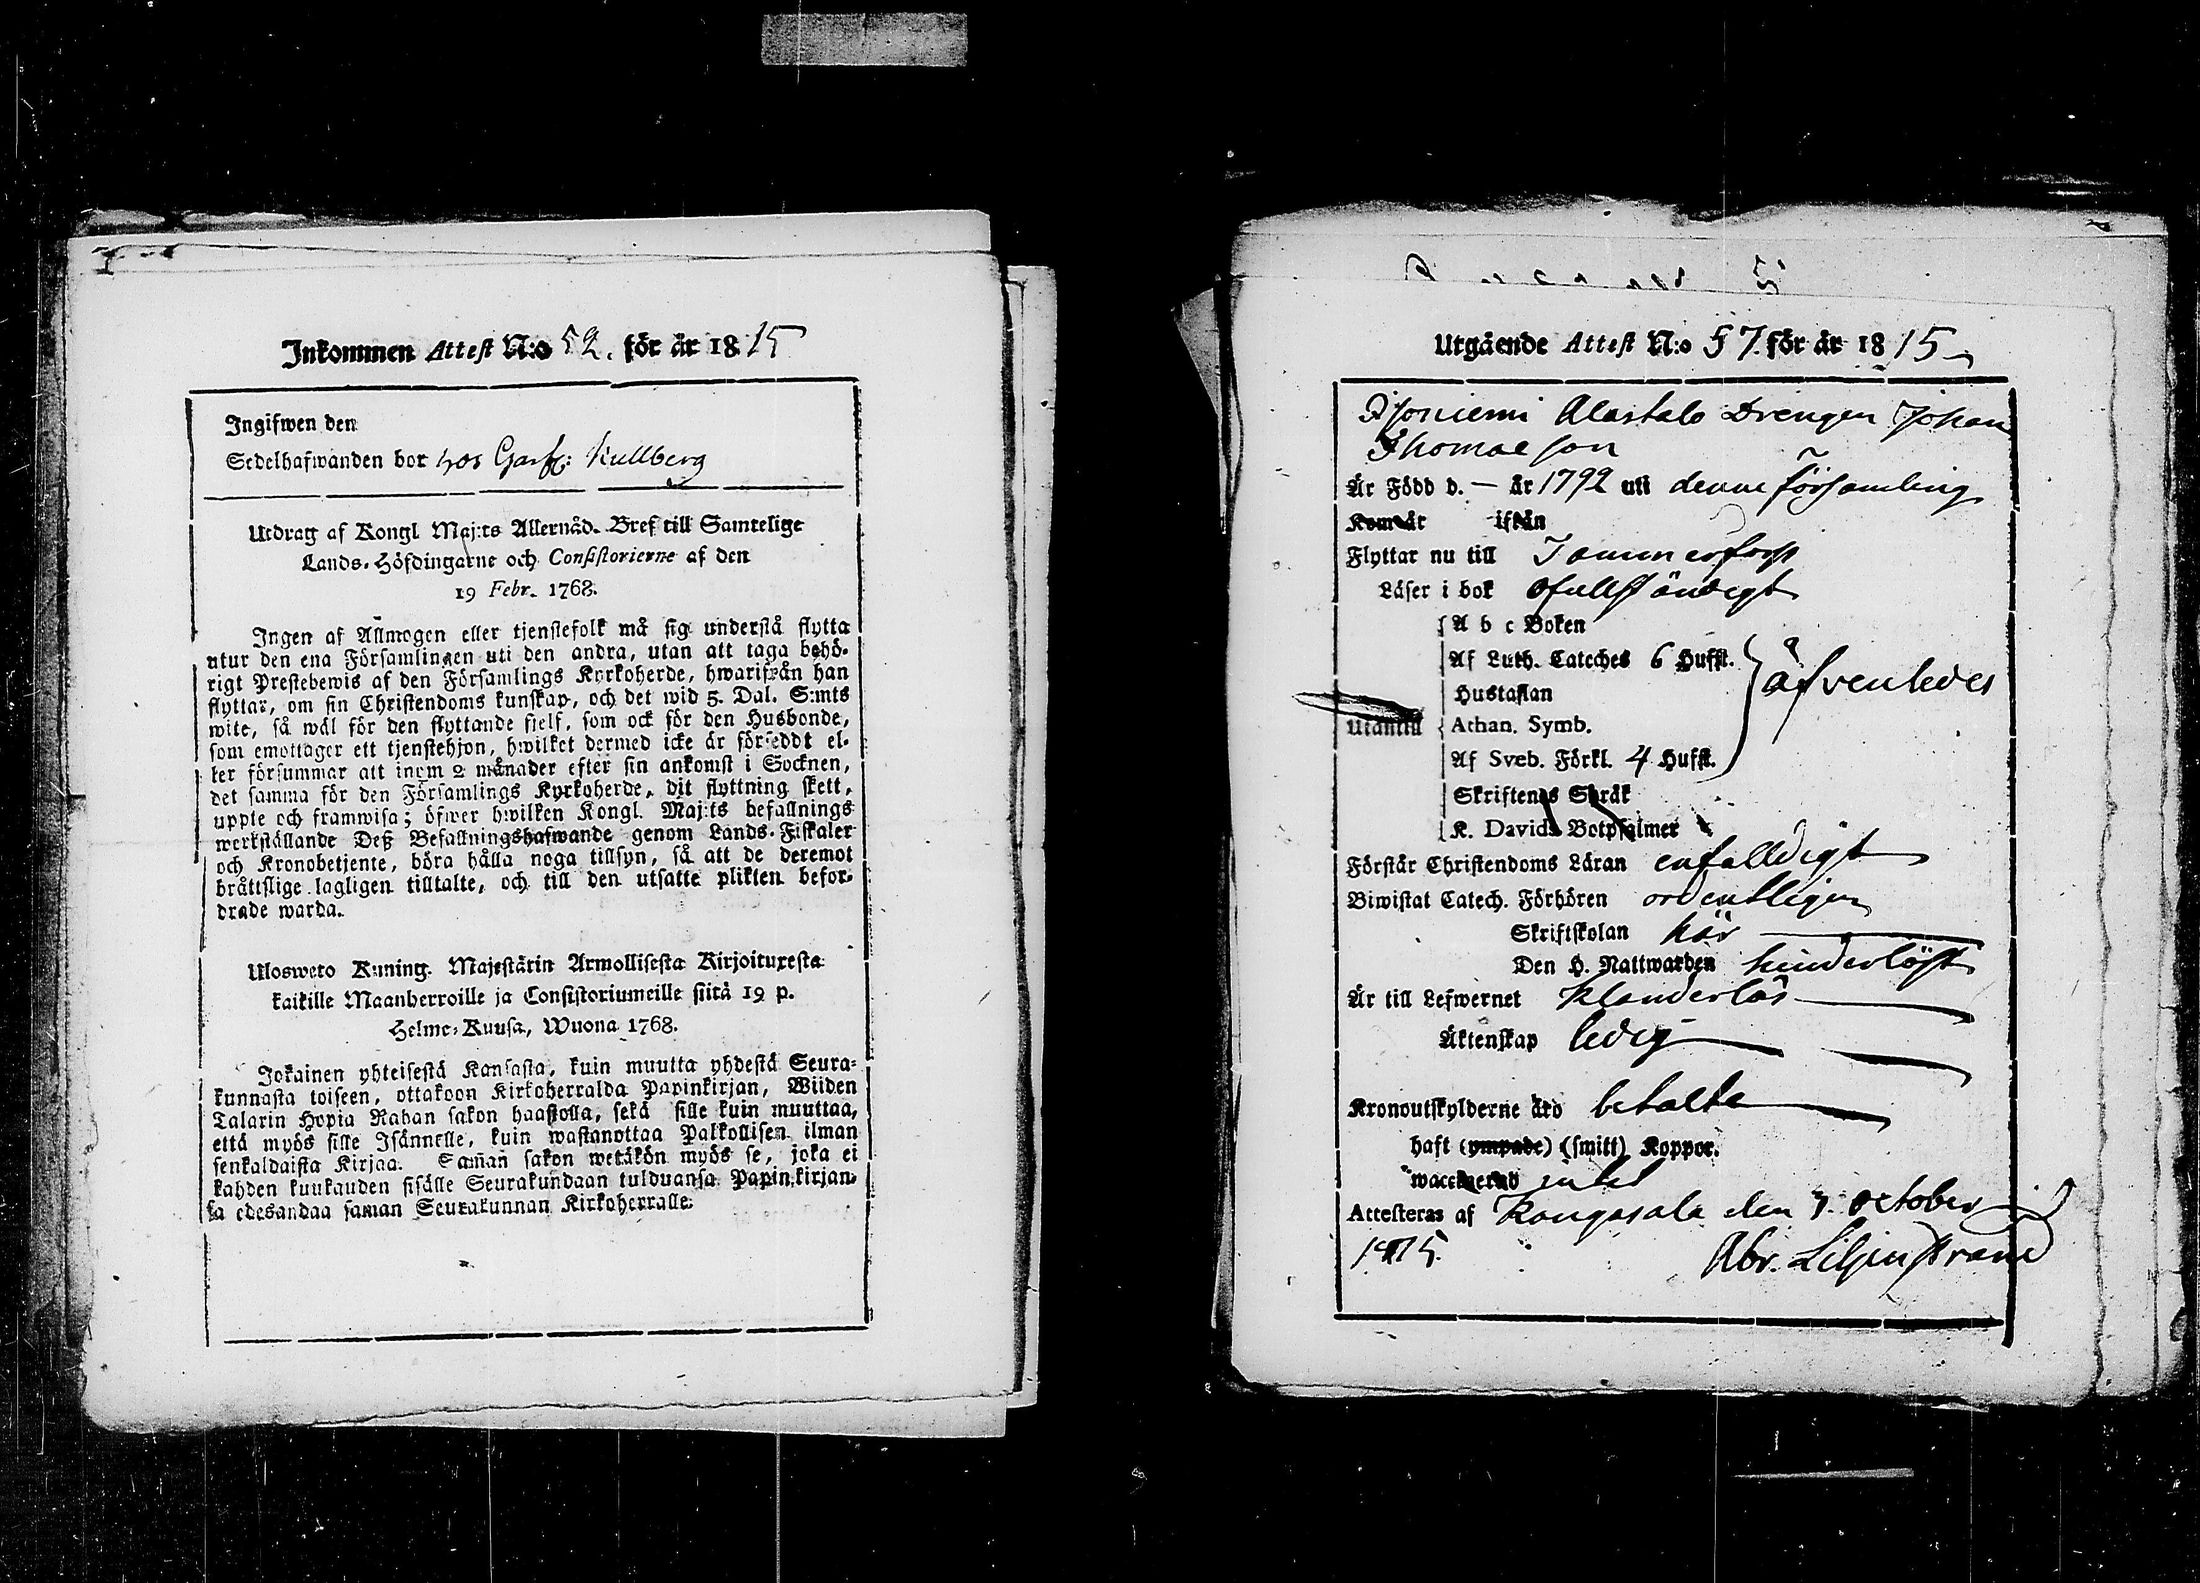 Inkommen Attest N:o 52. för år 1815
Ingifwen den
Sedelhafwanden bor hos Garf: Kullberg
Utdrag af Kongl Maj:ts Allernåd. Bref till Samtelige
Lands-Höfdingarne och Consistorierne af den
19 Febr. 1768.
Ingen af Allmogen eller tjenstefolk må sig understå flytta
utur den ena Församlingen uti den andra, utan att taga behö-
rigt Prestebewis af den Församlings Kyrkoherde, hwarifrån han
flyttar, om sin Christendoms kunskap, och det wid 5. Dal. S:mts
wite, så wäl för den flyttande sjelf, som ock för den Husbonde,
som emottager ett tjenstehjon, hwilket dermed icke är försedt el-
ler försummar att inom 2 månader efter sin ankomst i Socknen,
det samma för den Församlings Kyrkoherde, dit flyttning skett,
uppte och framwisa; öfwer hwilken Kongl. Maj:ts befallnings
werkställande Deß Befallningshafwande genom Lands-Fiskaler
och Kronobetjente, böra hålla noga tillsyn, så att de deremot
bråttslige lagligen tilltalte, och till den utsatte plikten befor-
drade warda.
Ulosweto Kuning. Majestärin Armollisesta Kirjoituxesta
kaikille Maanherroille ja Consistoriumeille siitä 19 p.
Helme-Kuusa, Wuona 1768.
Jokainen yhteisestä Kansasta, kuin muutta yhdestä Seura-
kunnasta toiseen, ottakoon Kirkoherralda Papinkirjan, Wiiden
Talarin Hopia Rahan sakon haastolla, sekä sille kuin muuttaa,
että myös sille Isännelle, kuin wastanottaa Palkollisen ilman
senkaldaista Kirjaa. Sam̃an sakon wetäkön myös se, joka ei
kahden kuukauden sisälle Seurakundaan tulduansa Papin kirjan-
sa edesandaa saman Seurakunnan Kirkoherralle.
Utgående Attest N:o 57. för år 1815
Alastalo Drengen Johan
Thomasson
Är Född d. — år 1792 uti denne församling
Kom år ifrån
Flyttar nu till Tammerfors
Läser i bok ofullständigt
A b c Boken
Af Luth. Cateches 6 Hufst.
Hustaflan
äfvenledes
Utantill Athan. Symb.
Af Sveb. Förkl. 4 Hufst.
Skriftenes Språk
K. Davids Botpsalmer
Förstår Christendoms Läran enfalldigt
Biwistat Catech. Förhören ordentligen
Skriftskolan här
Den H. Nattwarden hinderlöst
Är till Lefwernet Klanderlös
Äktenskap ledig
Kronoutskylderne äro betalte
haft (ympade) (smitt) Koppor.
Attesteras af Kangasala den 7. October
1815. Abr. Liljenstrand